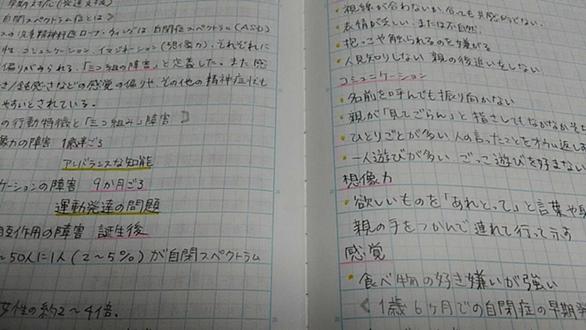 自閉スペクトラム症とは?
スの児童精神科医ローナ・ウィングは自閉症スペクトラム(ASD)
性、コミュニケーション、イマジネーション(想像力)、それぞれに
偏りがみられる、「三つ組の障害」と定義した。また感
さ/鈍感さなどの感覚の偏りや、その他の精神症状も
やすいとされている。
の行動特徴と「三つ組み」障害
像力の障害 1歳半ごろ
アンバランスな知能
ケーションの障害 9か月ごろ
運動発達の問題
相互作用の障害 誕生後
~50人に1人(2~5%)が自閉スペクトラム
女性の約2~4倍.
・視線が合わないか、合っても共感が乏しい
・表情が乏しい、または不自然
・抱っこや触られるのを嫌がる
・人見知りしない 親の後追いをしない
コミュニケーション
・名前を呼んでも振り向かない
・親が「見てごらん」と指さしても
・ひとりごとが多い 人の言ったことをオウム返し
・一人遊びが多い ごっこ遊びを好まない
想像力
・欲しいものを「あれとって」と言葉や
親の手をつかんで連れて行って示す
感覚
・食べ物の好き嫌いが強い
1歳6ヶ月での自閉症の早期